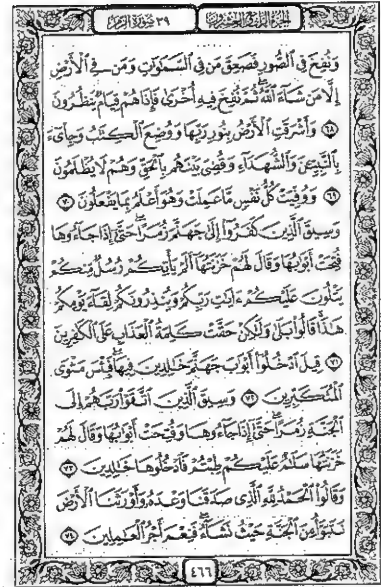 الجزء الرابع والعشرون
٣٩ سورة الزمر
وَنُفِخَ فِي ٱلصُّورِ فَصَعِقَ مَن فِي ٱلسَّمَٰوَٰتِ وَمَن فِي ٱلْأَرْضِ
إِلَّا مَن شَآءَ ٱللَّهُ ثُمَّ نُفِخَ فِيهِ أُخْرَىٰ فَإِذَا هُمْ قِيَامٌ يَنظُرُونَ
٦٨ وَأَشْرَقَتِ ٱلْأَرْضُ بِنُورِ رَبِّهَا وَوُضِعَ ٱلْكِتَٰبُ وَجِا۟ىٓءَ
بِٱلنَّبِيِّـۧنَ وَٱلشُّهَدَآءِ وَقُضِيَ بَيْنَهُم بِٱلْحَقِّ وَهُمْ لَا يُظْلَمُونَ
٦٩ وَوُفِّيَتْ كُلُّ نَفْسٍ مَّا عَمِلَتْ وَهُوَ أَعْلَمُ بِمَا يَفْعَلُونَ ٧٠
وَسِيقَ ٱلَّذِينَ كَفَرُوٓا۟ إِلَىٰ جَهَنَّمَ زُمَرًا حَتَّىٰٓ إِذَا جَآءُوهَا
فُتِحَتْ أَبْوَٰبُهَا وَقَالَ لَهُمْ خَزَنَتُهَآ أَلَمْ يَأْتِكُمْ رُسُلٌ مِّنكُمْ
يَتْلُونَ عَلَيْكُمْ ءَايَٰتِ رَبِّكُمْ وَيُنذِرُونَكُمْ لِقَآءَ يَوْمِكُمْ
هَٰذَا قَالُوا۟ بَلَىٰ وَلَٰكِنْ حَقَّتْ كَلِمَةُ ٱلْعَذَابِ عَلَى ٱلْكَٰفِرِينَ
٧١ قِيلَ ٱدْخُلُوٓا۟ أَبْوَٰبَ جَهَنَّمَ خَٰلِدِينَ فِيهَا فَبِئْسَ مَثْوَى
ٱلْمُتَكَبِّرِينَ ٧٢ وَسِيقَ ٱلَّذِينَ ٱتَّقَوْا۟ رَبَّهُمْ إِلَى
ٱلْجَنَّةِ زُمَرًا حَتَّىٰٓ إِذَا جَآءُوهَا وَفُتِحَتْ أَبْوَٰبُهَا وَقَالَ لَهُمْ
خَزَنَتُهَا سَلَٰمٌ عَلَيْكُمْ طِبْتُمْ فَٱدْخُلُوهَا خَٰلِدِينَ ٧٣
وَقَالُوا۟ ٱلْحَمْدُ لِلَّهِ ٱلَّذِي صَدَقَنَا وَعْدَهُۥ وَأَوْرَثَنَا ٱلْأَرْضَ
نَتَبَوَّأُ مِنَ ٱلْجَنَّةِ حَيْثُ نَشَآءُ فَنِعْمَ أَجْرُ ٱلْعَٰمِلِينَ ٧٤
٤٦٦